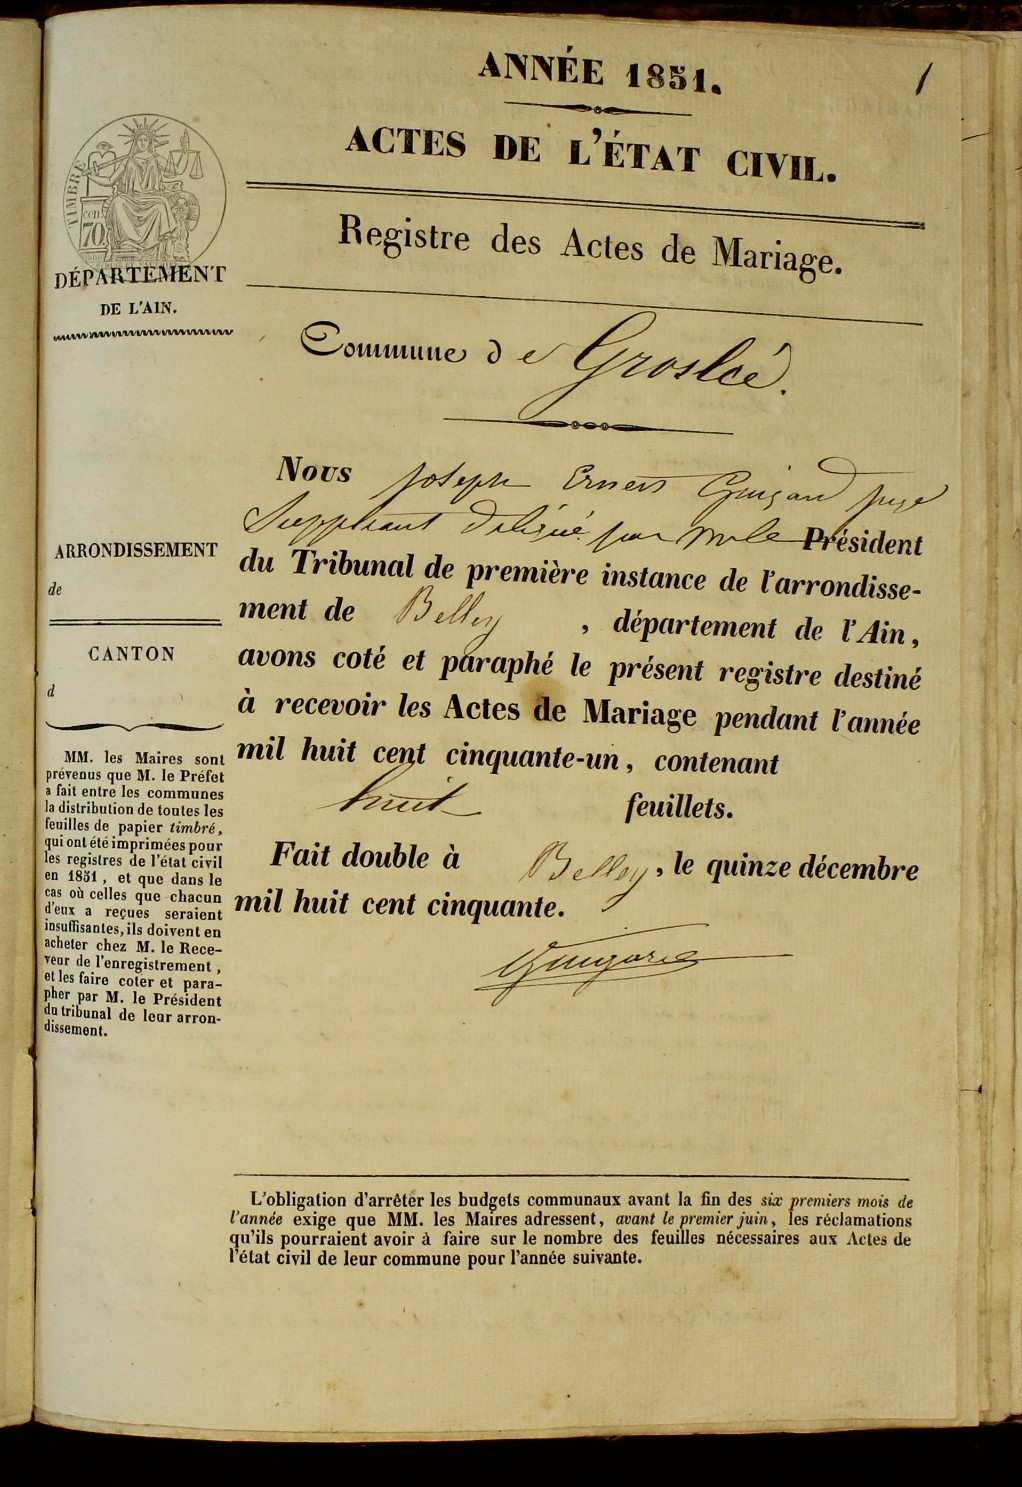 ANNÉE 1851.
1
ACTES DE L'ÉTAT CIVIL.
Registre des Actes de Mariage.
TIMBRE
cen
70
DÉPARTEMENT
DE L'AIN.
Commune de Groslée.
Nous Joseph Ernest Guigard juge
Suppléant délégué par Mr le Président
du Tribunal de première instance de l'arrondisse-
ment de Belley, département de l'Ain,
avons coté et paraphé le présent registre destiné
à recevoir les Actes de Mariage pendant l'année
mil huit cent cinquante-un, contenant
huit feuillets.
Fait double à Belley, le quinze décembre
mil huit cent cinquante.
Guigard
ARRONDISSEMENT
de
CANTON
d
MM. les Maires sont
prévenus que M. le Préfet
a fait entre les communes
la distribution de toutes les
feuilles de papier timbré,
qui ont été imprimées pour
les registres de l'état civil
en 1851, et que dans le
cas où celles que chacun
d'eux a reçues seraient
insuffisantes, ils doivent en
acheter chez M. le Rece-
veur de l'enregistrement,
et les faire coter et para-
pher par M. le Président
du tribunal de leur arron-
dissement.
L'obligation d'arrêter les budgets communaux avant la fin des six premiers mois de
l'année exige que MM. les Maires adressent, avant le premier juin, les réclamations
qu'ils pourraient avoir à faire sur le nombre des feuilles nécessaires aux Actes de
l'état civil de leur commune pour l'année suivante.